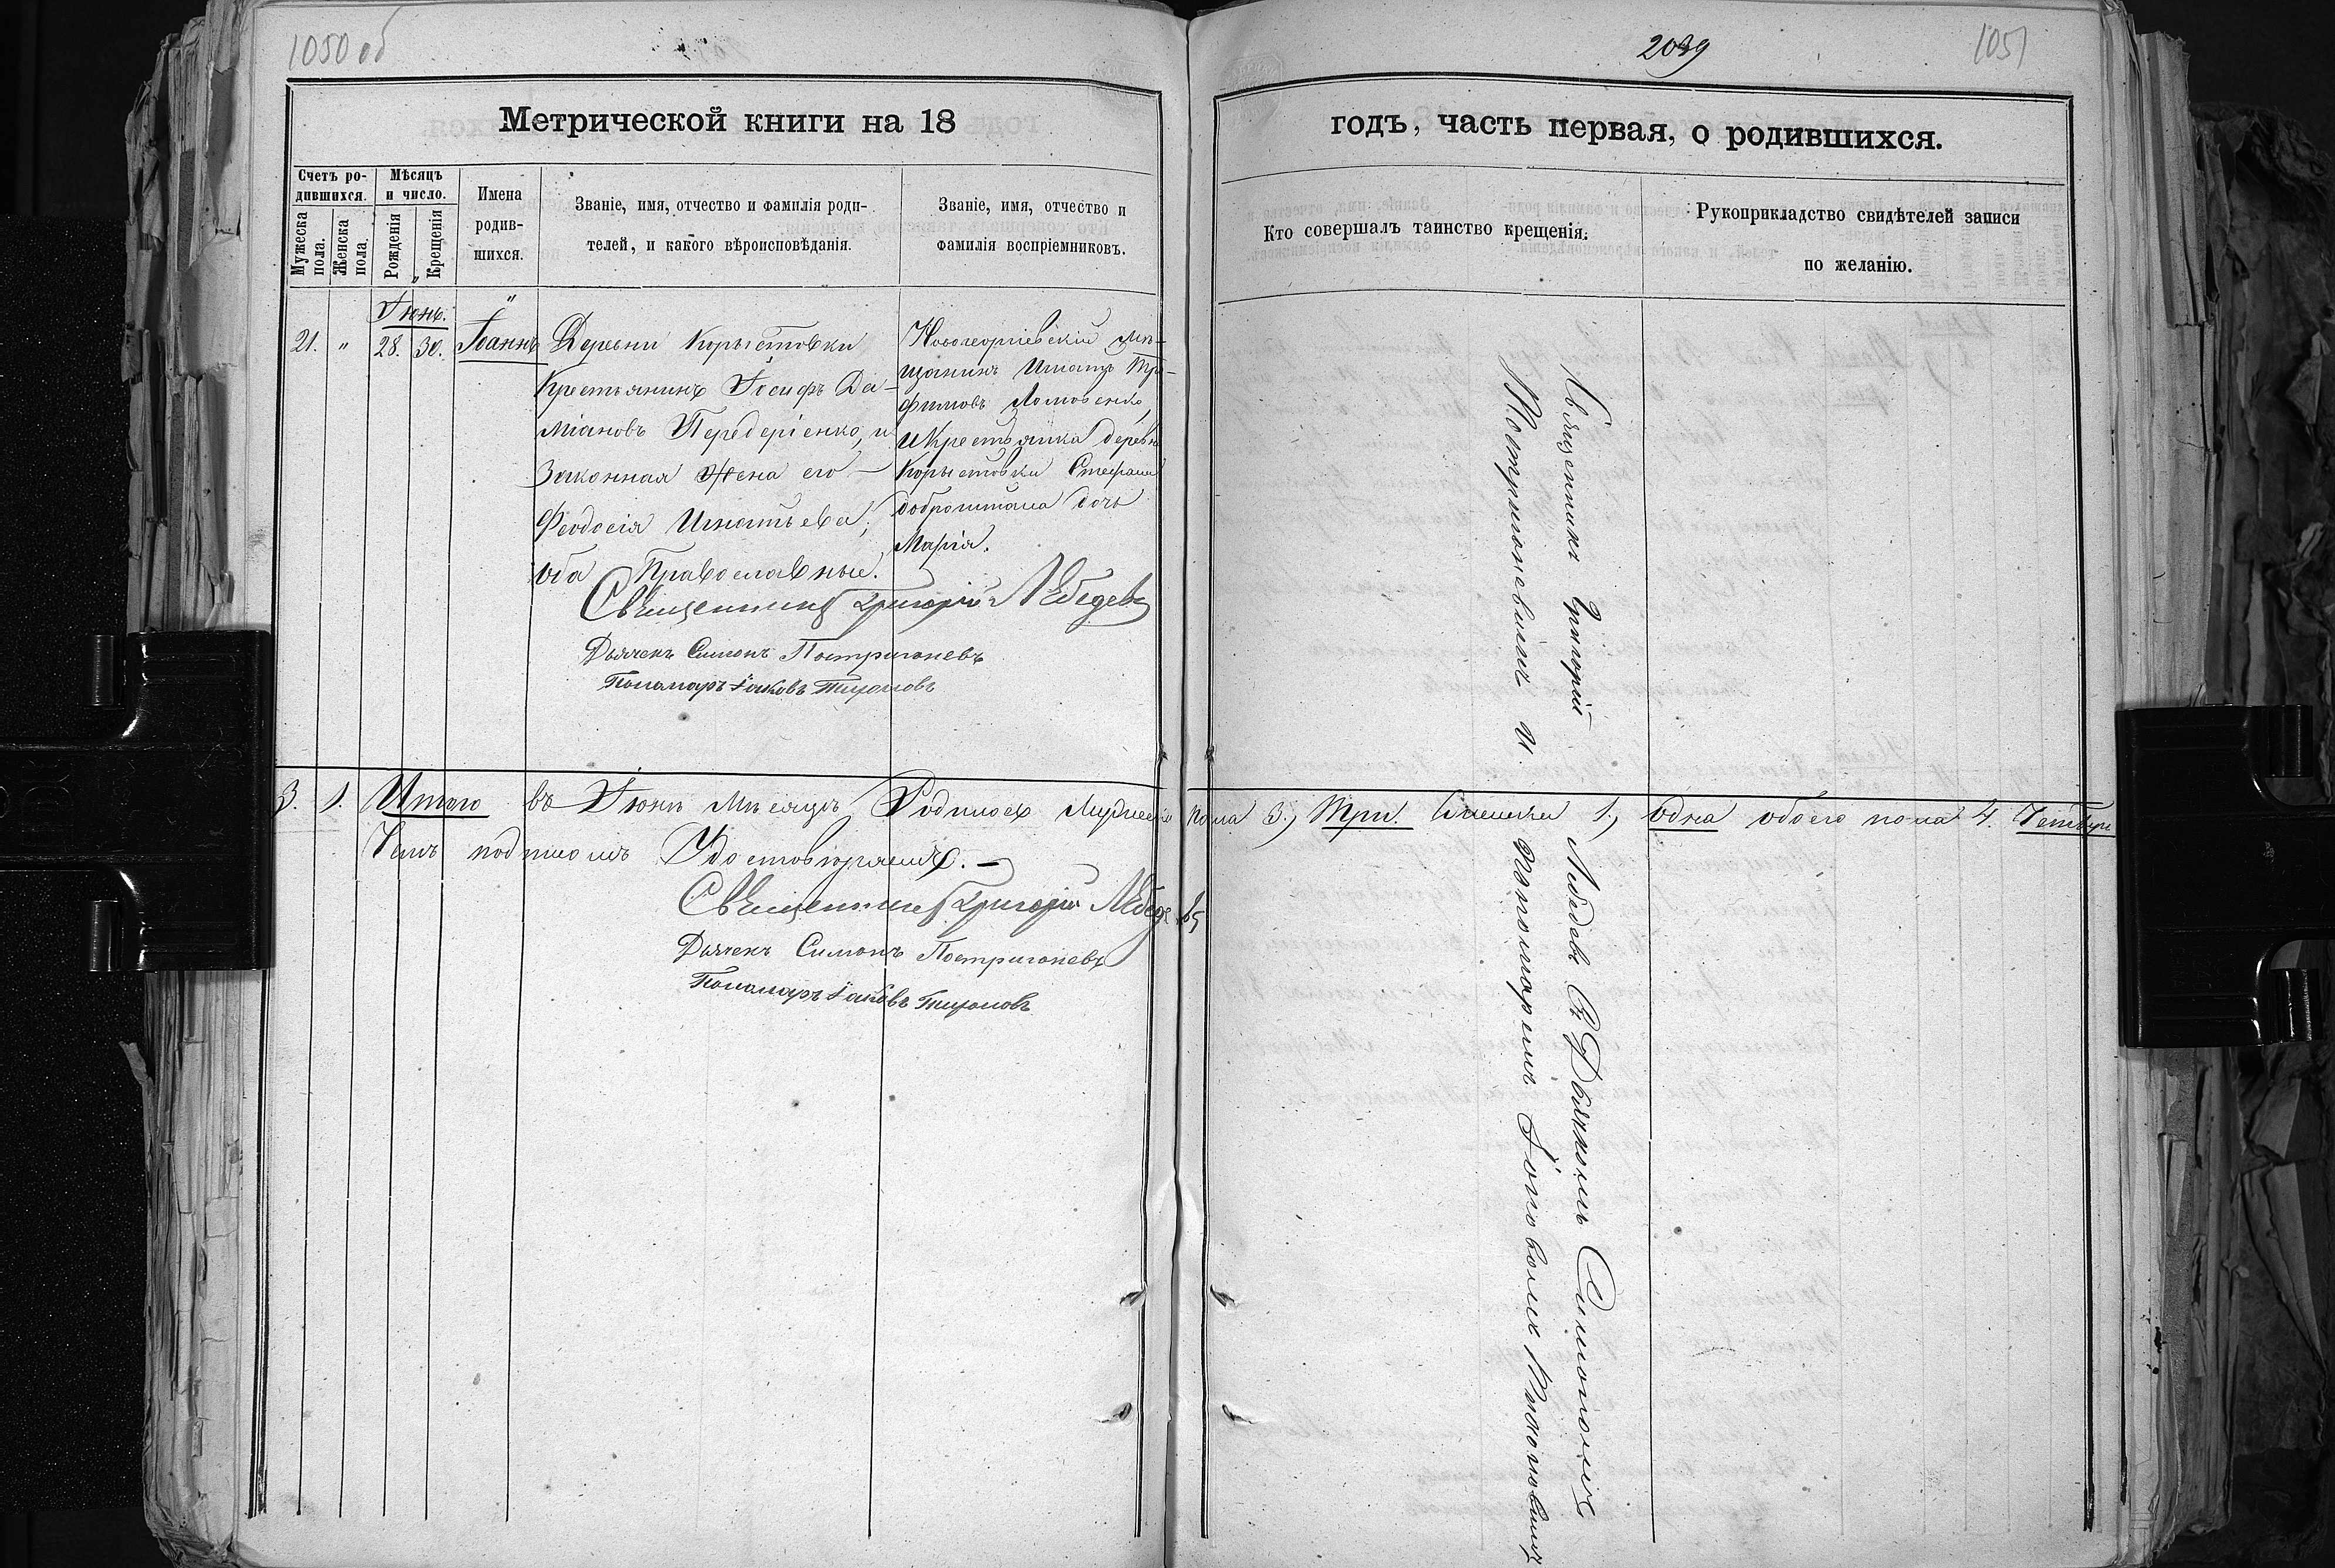 1050 об
Метрической книги на 18
Счетъ ро-
дившихся.
Мужеска
пола.
Женска
пола.
Мѣсяцъ
и число.
Рожденія
Крещенія
Имена
родив-
шихся.
Званіе, имя, отчество и фамилія роди-
телей, и какого вѣроисповѣданія.
Званіе, имя, отчество и
фамилія воспріемниковъ.
Іюнь.
21. " 28. 30. Іоаннъ
Деревни Корыстовки
Крестьянинъ Іосифъ Да-
міановъ Передеріенко, и
Законная жена его —
Феодосія Игнатьева;
оба Православные.
Новогеоргіевскій мѣ-
щанинъ Игнатъ Тро-
фимовъ Ломовенко,
и Крестьянка деревни
Корыстовки Стефана
дочь
Марія.
Священникъ Григорій Лебедевъ
Дьячекъ Симонъ Постригоневъ
Пономарь Іаковъ Тихоновъ
3. 1. Итого въ Іюнѣ Мѣсяцѣ Родилось Мужеска пола 3., Три. Женска 1., Одна обоего пола 4. Четыре
Чемъ подписомъ Удостовѣряемъ. —
Священникъ Григорій Лебедевъ
Дьячекъ Симонъ Постригоневъ
Пономарь Іаковъ Тихоновъ
2039
1051
годъ, часть первая, о родившихся.
Кто совершалъ таинство крещенія.
Рукоприкладство свидѣтелей записи
по желанію.
Священникъ Григорій Лебедевъ Съ Дьячкомъ Симономъ
Постригоневымъ и Пономаремъ Іаковомъ Тихоновымъ